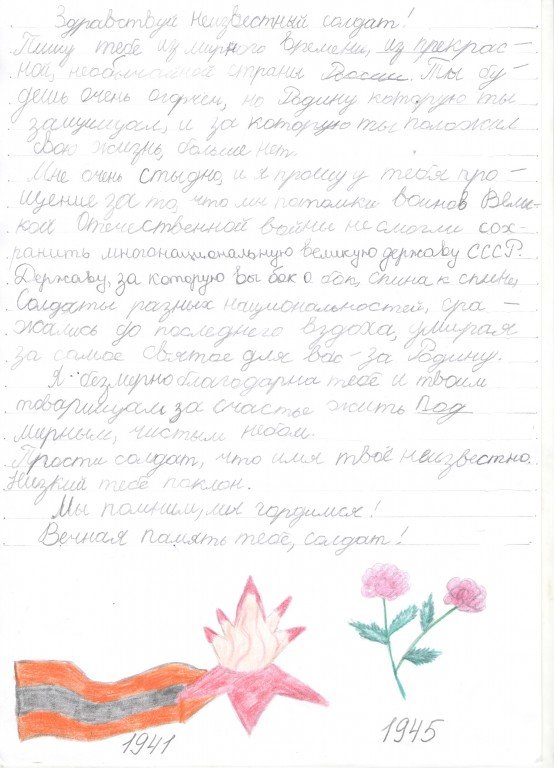 Здравствуй неизвестный солдат!
Пишу тебе из мирного времени, из прекрас-
ной, необычайной страны России. Ты бу-
дешь очень огорчен, но Родину которую ты
защищал, и за которую ты положил
свою жизнь, больше нет.
Мне очень стыдно, и я прошу у тебя про-
щение за то, что мы потомки воинов Вели-
кой Отечественной войны не смогли сох-
ранить многонациональную великую державу СССР.
Державу, за которую вы бок о бок, спина к спине,
Солдаты разных национальностей, сра-
жались до последнего вздоха, умирая
за самое святое для вас - за Родину.
Я безмерно благодарна тебе и твоим
товарищам за счастье жить под
мирным, чистым небом.
Прости солдат, что имя твоё неизвестно.
Низкий тебе поклон.
Мы помним, мы гордимся!
Вечная память тебе, солдат!
1941
1945